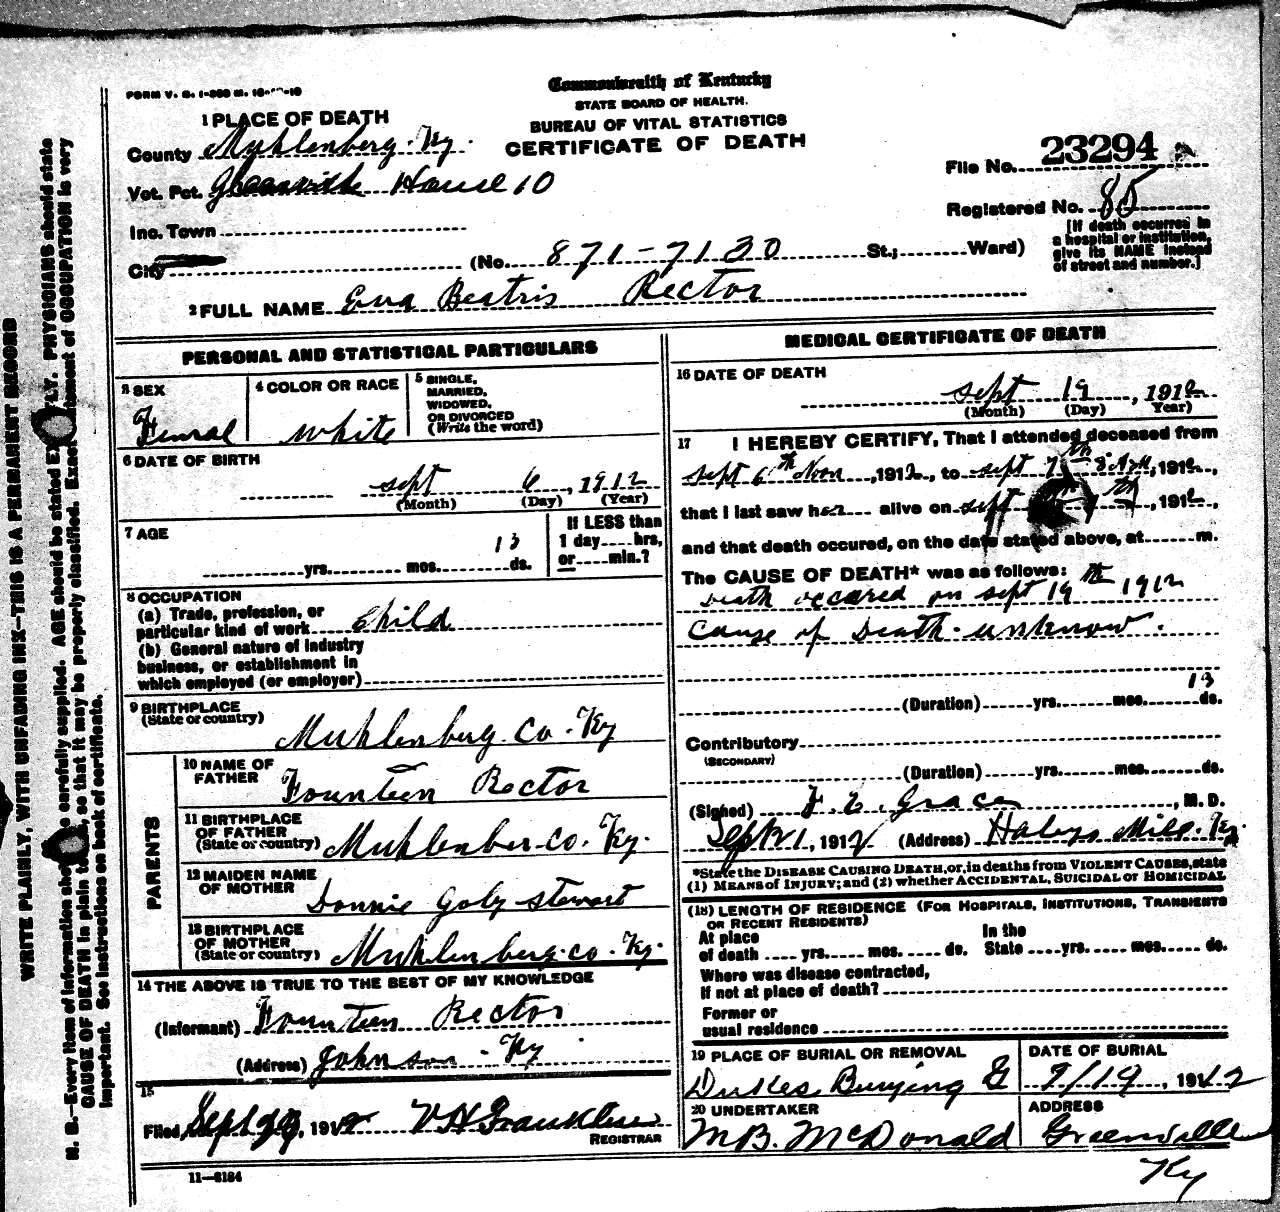 Commonwealth of Kentucky
STATE BOARD OF HEALTH.
BUREAU OF VITAL STATISTICS
CERTIFICATE OF DEATH
FORM V. S.
1 PLACE OF DEATH
County Muhlenberg. Ky.
Vot. Pct. House 10
Inc. Town
City (No. 871-7130 St.; Ward)
File No. 23294
Registered No. 85
[If death occurred in
a hospital or institution,
give its NAME instead
of street and number.]
2 FULL NAME Eva Beatris Rector
PERSONAL AND STATISTICAL PARTICULARS
3 SEX
Femal
4 COLOR OR RACE
White
5 SINGLE,
MARRIED,
WIDOWED,
OR DIVORCED
(Write the word)
6 DATE OF BIRTH
sept 6, 1912
(Month) (Day) (Year)
7 AGE
yrs. mos. 13 ds.
If LESS than
1 day....hrs,
or....min.?
8 OCCUPATION
(a) Trade, profession, or
particular kind of work Child
(b) General nature of industry
business, or establishment in
which employed (or employer)
9 BIRTHPLACE
(State or country)
Muhlenberg. Co. Ky
PARENTS
10 NAME OF
FATHER
Founteen Rector
11 BIRTHPLACE
OF FATHER
(State or country) Muhlenber. Co. Ky.
12 MAIDEN NAME
OF MOTHER
Donnie Goby Stewart
13 BIRTHPLACE
OF MOTHER
(State or country) Muhlenberg. co. Ky.
14 THE ABOVE IS TRUE TO THE BEST OF MY KNOWLEDGE
(Informant) Founteen Rector
(Address) Johnson. Ky
15
Filed Sept 1912 VH Franklin
REGISTRAR
11—8184
MEDICAL CERTIFICATE OF DEATH
16 DATE OF DEATH
sept 19, 1912
(Month) (Day) Year)
17 I HEREBY CERTIFY, That I attended deceased from
sept 6th Noon, 1912, to sept 7th 1912,
that I last saw her alive on sept 7th, 1912,
and that death occured, on the date stated above, at m.
The CAUSE OF DEATH* was as follows:
Death occured on sept 19th 1912
Cause of Death unknow.
(Duration) yrs. mos. 13 ds.
Contributory
(SECONDARY)
(Duration) yrs. mos. ds.
(Signed) J. E. Grace, M. D.
Sept 21, 1912 (Address) Haleys Mill. Ky.
*State the DISEASE CAUSING DEATH, or, in deaths from VIOLENT CAUSES, state
(1) MEANS of INJURY; and (2) whether ACCIDENTAL, SUICIDAL or HOMICIDAL
(18) LENGTH OF RESIDENCE (FOR HOSPITALS, INSTITUTIONS, TRANSIENTS
OR RECENT RESIDENTS)
At place In the
of death .... yrs. mos. ds. State .... yrs. mos. ds.
Where was disease contracted,
If not at place of death?
Former or
usual residence
19 PLACE OF BURIAL OR REMOVAL
Dukes Burying G
DATE OF BURIAL
9/19, 1912
20 UNDERTAKER
M B. McDonald
ADDRESS
Greenville
Ky
WRITE PLAINLY, WITH UNFADING INK—THIS IS A PERMANENT RECORD
N. B.—Every item of information should be carefully supplied. AGE should be stated EXACTLY. PHYSICIANS should state
CAUSE OF DEATH in plain terms, so that it may be properly classified. Exact statement of OCCUPATION is very
important. See instructions on back of certificate.